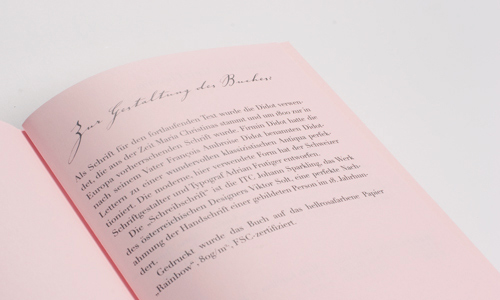 Zur Gestaltung des Buches:
Als Schrift für den fortlaufenden Text wurde die Didot verwen-
det, die aus der Zeit Maria Christinas stammt und um 1800 zur in
Europa vorherrschenden Schrift wurde. Firmin Didot hatte die
nach seinem Vater François Ambroise Didot benannten Didot-
Lettern zu einer wundervollen klassizistischen Antiqua perfek-
tioniert. Die moderne, hier verwendete Form hat der Schweizer
Schriftgestalter und Typograf Adrian Frutiger entworfen.
Die „Schreibschrift" ist die ITC Johann Sparkling, das Werk
des österreichischen Designers Viktor Solt, eine perfekte Nach-
ahmung der Handschrift einer gebildeten Person im 18. Jahrhun-
dert.
Gedruckt wurde das Buch auf das hellrosafarbene Papier
„Rainbow", 80g/m², FSC-zertifiziert.